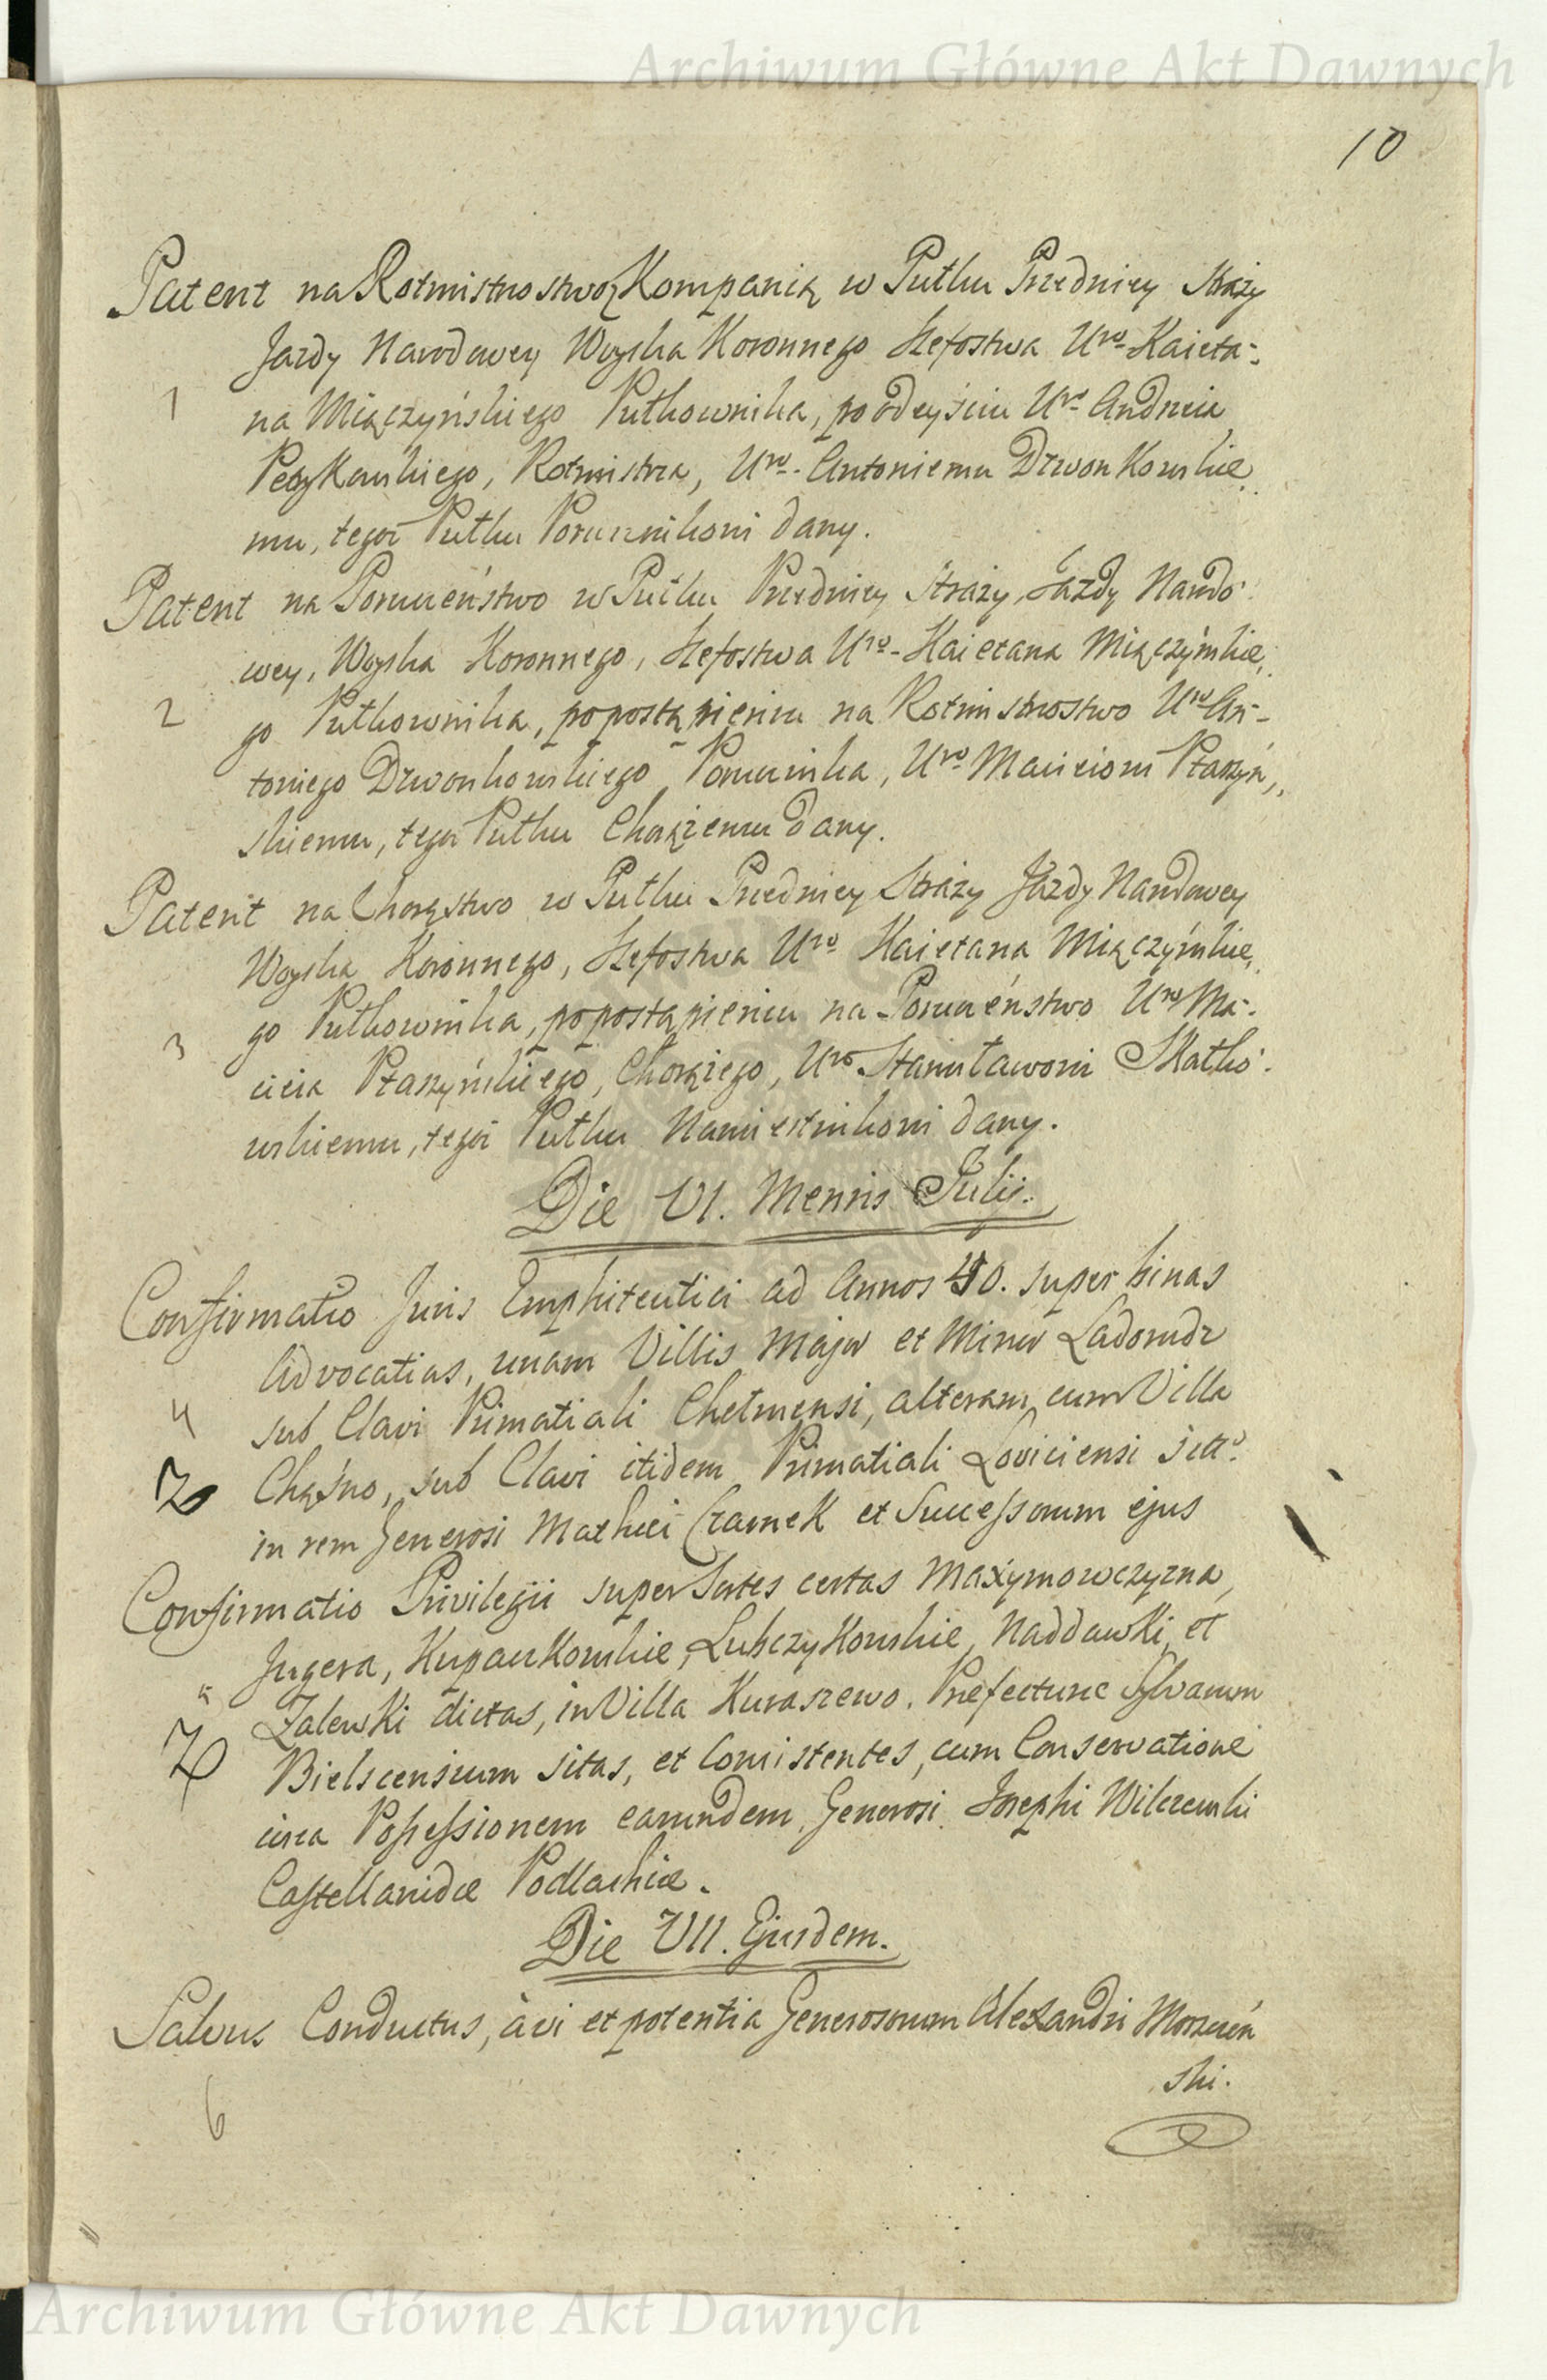 Archiwum Główne Akt Dawnych
10
Patent na Rotmistrzostwo z Kompanią w Pułku Przedniey Straży
Jazdy Narodowey Woyska Koronnego Szefostwa Uro- Kaieta-
1
na Miączyńskiego Pułkownika, po odeyściu Uro Andrzeia
Rotmistrza, Uro- Antoniemu Dzwonkowskie-
mu, tegoż Pułku Porucznikowi dany.
Patent na Poruczeństwo w Pułku Przedniey Straży, Jazdy Narodo-
wey, Woyska Koronnego, Szefostwa Uro- Kaietana Miączyńskie,
2
go Pułkownika, po postąpieniu na Rotmistrzostwo Uro An-
toniego Dzwonkowskiego Porucznika, Uro Macieiowi Ptaszyń,,
skiemu, tegoż Pułku Chorążemu dany.
Patent na Chorąstwo w Pułku Przedniey Straży Jazdy Narodowey
Woyska Koronnego, Szefostwa Uro Kaietana Miączyńskie,
3
go Pułkownika, po postąpieniu na Poruczeństwo Uro Ma-
cieia Ptaszyńskiego, Chorążego, Uro Stanisławowi Skatko-
wskiemu, tegoż Pułku Namiestnikowi dany.
Die VI. Mensis Julij.
Confirmatio Juris Emphiteutici ad Annos 40. super binas
Advocatias, unam Villis Major et Minor Ladorudz
4
sub Clavi Primatiali Chełmensi, alteram cum Villa
Chąśno, sub Clavi itidem Primatiali Loviciensi
in rem Generosi Mathiei Czamek et Successorum ejus
Confirmatio Privilegii super Sortes certas Maxymowczyzna,
Jugera, Lubczykowskie, Naddawki et
5
Zalewki dictas, in Villa Kuraszewo, Præfecturæ Sylvarum
Bielscensium sitas, et Consistentes, cum Conservatione
circa Possessionem earundem, Generosi Josephi Wilczewski
Castellanidæ Podlachiæ.
Die VII. Ejusdem.
Salvus Conductus, à vi et potentia Generosorum Alexandri Morzeń
6
ski.
Archiwum Główne Akt Dawnych